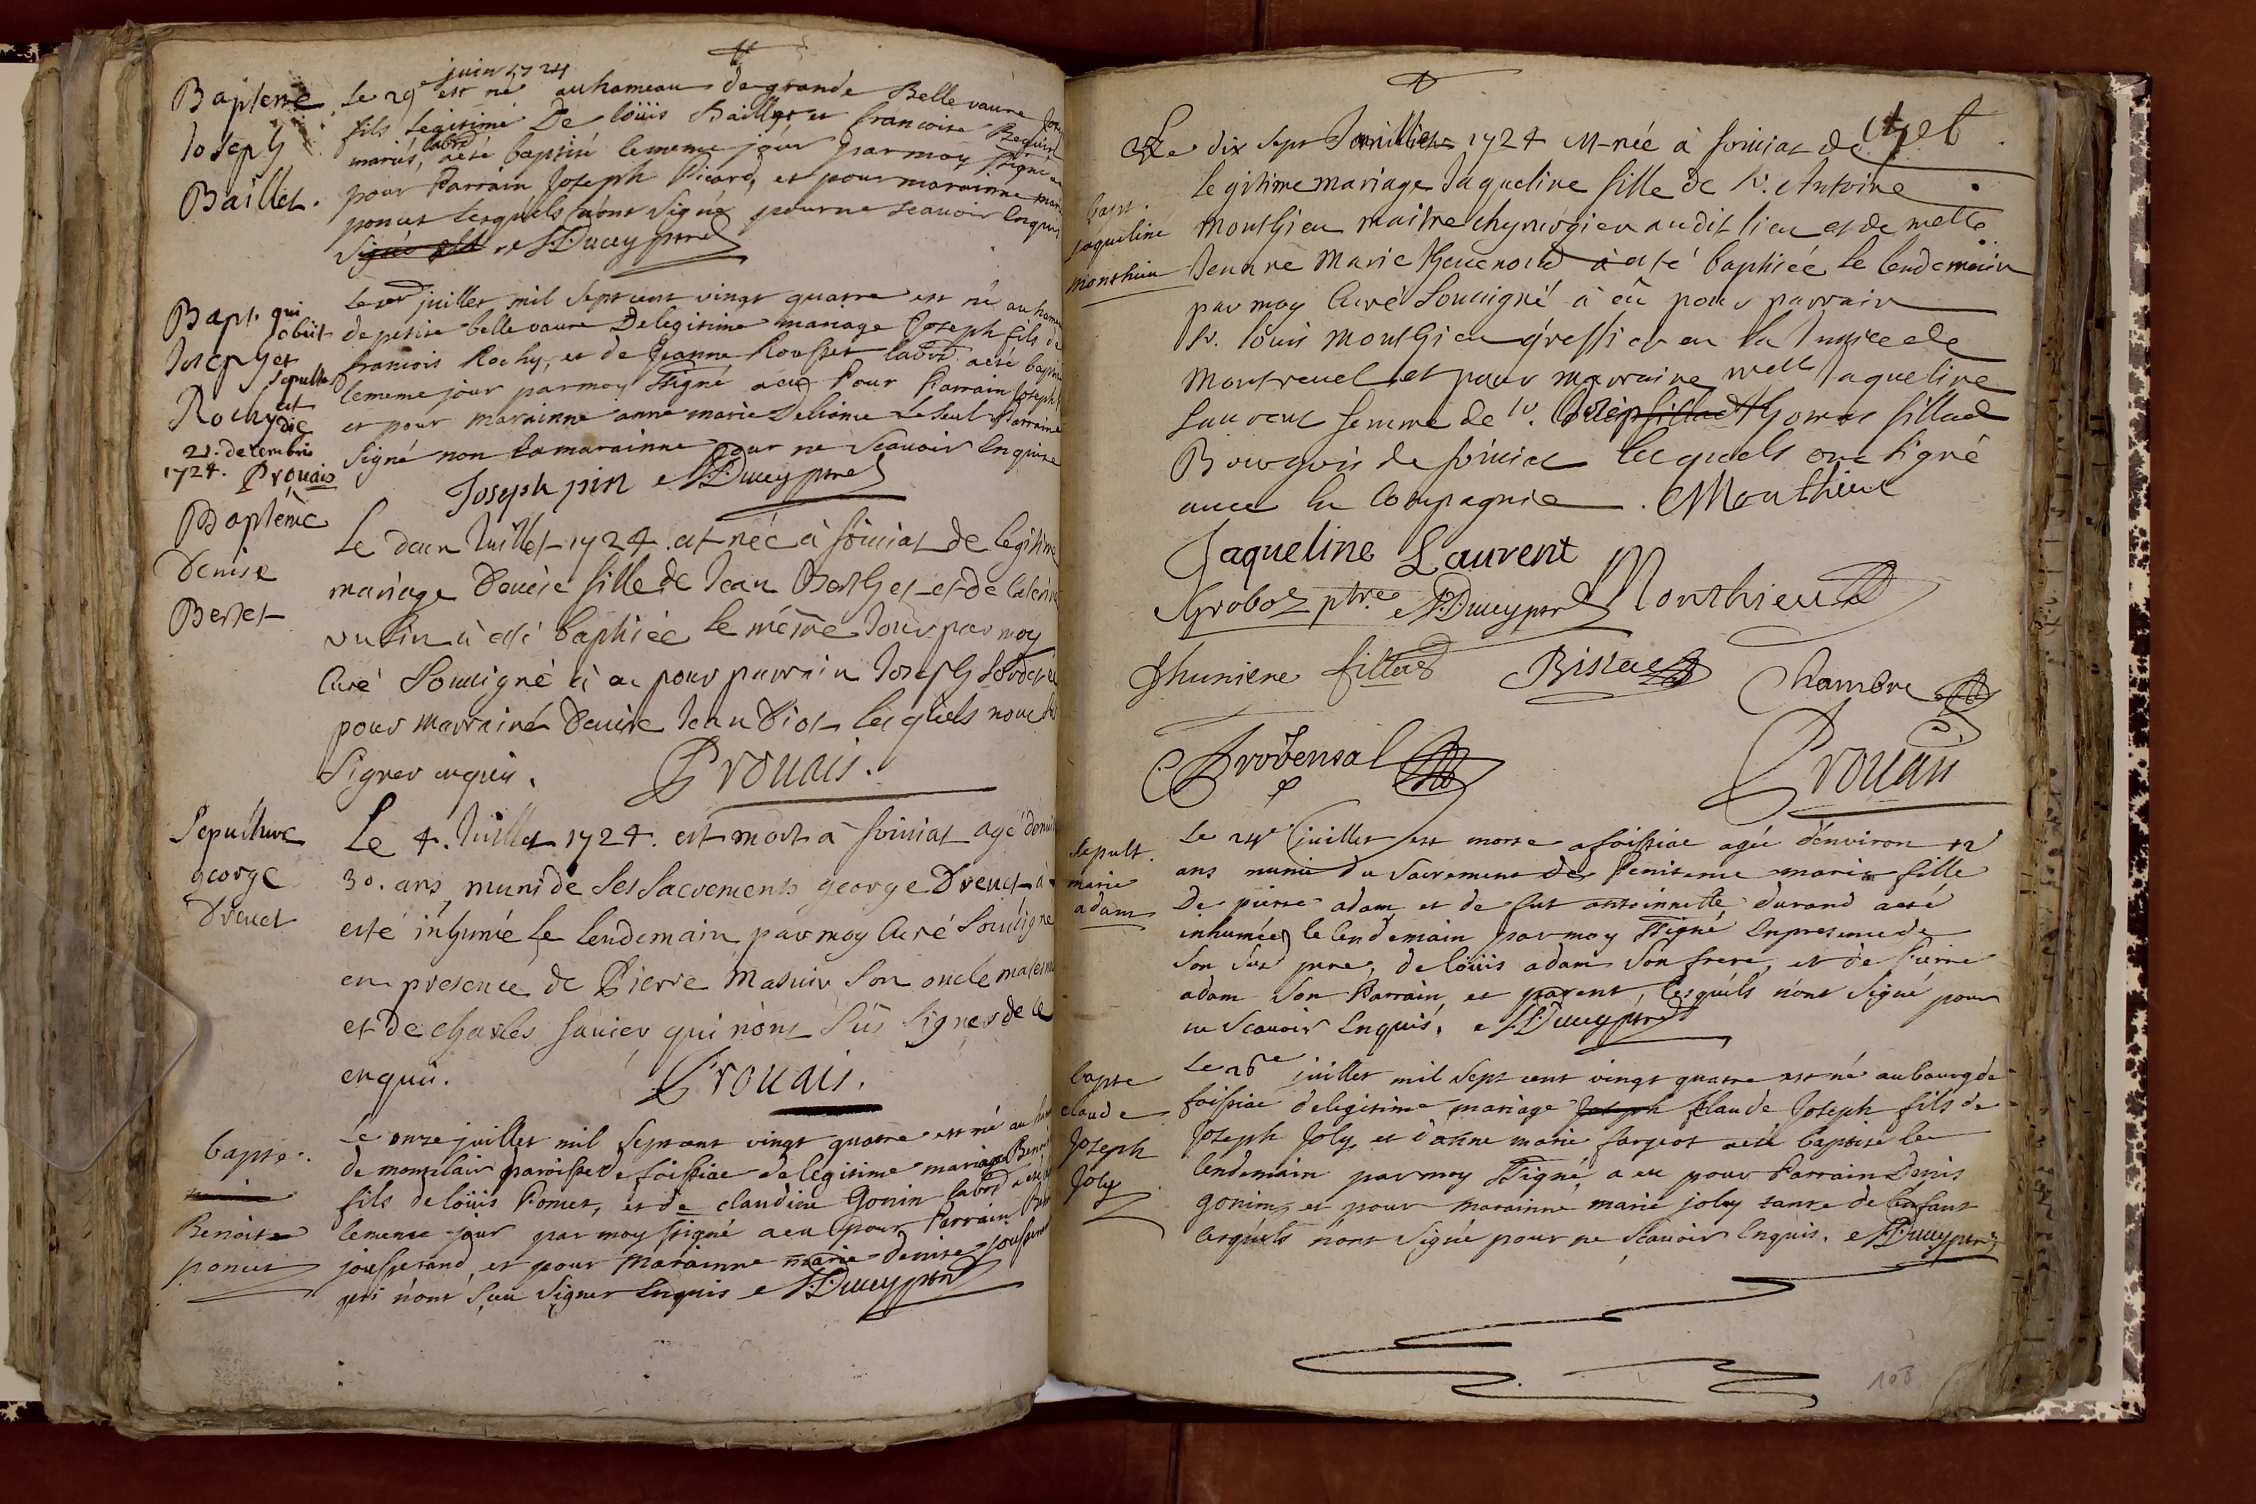 Bapteme
Joseph
Baillet.
juin 1724
Le 29e est né au hameau de grande Bellevaure
fils legitime De loüis Baillet et francoise
mariés, labrs aeté baptisé le meme jour par moy ssigné
pour Parrain Joseph Picard, et pour marainne
poncet lesquels n'ont signé pour ne scavoir enquis
J:Ducey ptre
Bapt. qui
obiit
Joseph et
sepultus
Rochy est
die
21. decembris
1724. Prouais
Le 1er juillet mil sept cent vingt quatre est né au
de petite belle vaure De legitime mariage Joseph fils de
francois Rochy, et de Jeanne Rousset labrs aeté
le meme jour par moy ssigné a eu Pour Parrain Joseph
et pour marainne anne marie Le seul Parrain
signé non La marainne pour ne scavoir enquise
Joseph pin J:Ducey ptre
Bapteme
Denise
Bertet
Le deux Juillet 1724. est née à foissiat de legitime
mariage Denise fille de Jean Berthet et de
à esté baptisée le même Jour par moy
Curé Soussigné à eu pour parrain Joseph
pour marrainé Denise lesquels
Signer enquis. Prouais.
Sepulture
george
Dreuet
Le 4. Juillet 1724. est mort à foissiat agé
30. ans muni de ses sacrements george Dreuet à
esté inhumé le lendemain par moy Curé Soussigné
en presence de Pierre son oncle
et de charles qui n'ont sûs signer de ce
enquis. Prouais.
bapte.
Benoit
poncet
Le onze juillet mil sept cent vingt quatre est né au
de montclair paroisse de foissiac de legitime mariage
fils de loüis Poncet, et de claudine Gonin labrs
le meme jour par moy ssigné a eu pour Parrain
jousserand, et pour marainne marie denise
qui n'ont sceu signer enquis J:Ducey ptre
bapt.
jaqueline
monthieu
Le dix sept Juillet 1724 est née à foissiat de et
legitime mariage Jaqueline fille de Sr. Antoine
Monthieu maitre chyrurgien audit lieu et de melle
Jeanne Marie à esté baptisée le lendemain
par moy Curé Soussigné à eû pour parrain
Sr. loüis Monthieu greffier en la Justice de
Montreuel et pour marraine melle Jaqueline
Laurent femme de Sr. Thomas fillod
Bourgois de foissiat lesquels ont signé
avec la Compagnie. Monthieu
Jaqueline Laurent
Groboz ptre J:Ducey ptre Monthieu
fillod Chambre
Provensal Prouais
Sepult.
marie
adam
Le 24e juillet est morte a foissiac agée d'environ 12
ans munie du sacrement de Penitence marie fille
De pierre adam et de fut antoinette durand aeté
inhumée le lendemain par moy ssigné en presence de
son sud pere, de loüis adam son frere, et de Pierre
adam son Parrain et parent, lesquels n'ont signé pour
ne scavoir enquis. J:Ducey ptre
bapte
claude
Joseph
Joly
Le 26me juillet mil sept cent vingt quatre est né au bourg de
foissiac de legitime mariage Joseph Claude Joseph fils de
Joseph Joly, et d'anne marie fargeot aeté baptisé le
lendemain par moy ssigné, a eu pour Parrain Denis
gonin, et pour marainne marie joly tante de l'enfant
lesquels n'ont signé pour ne scavoir enquis. J:Ducey ptre
108